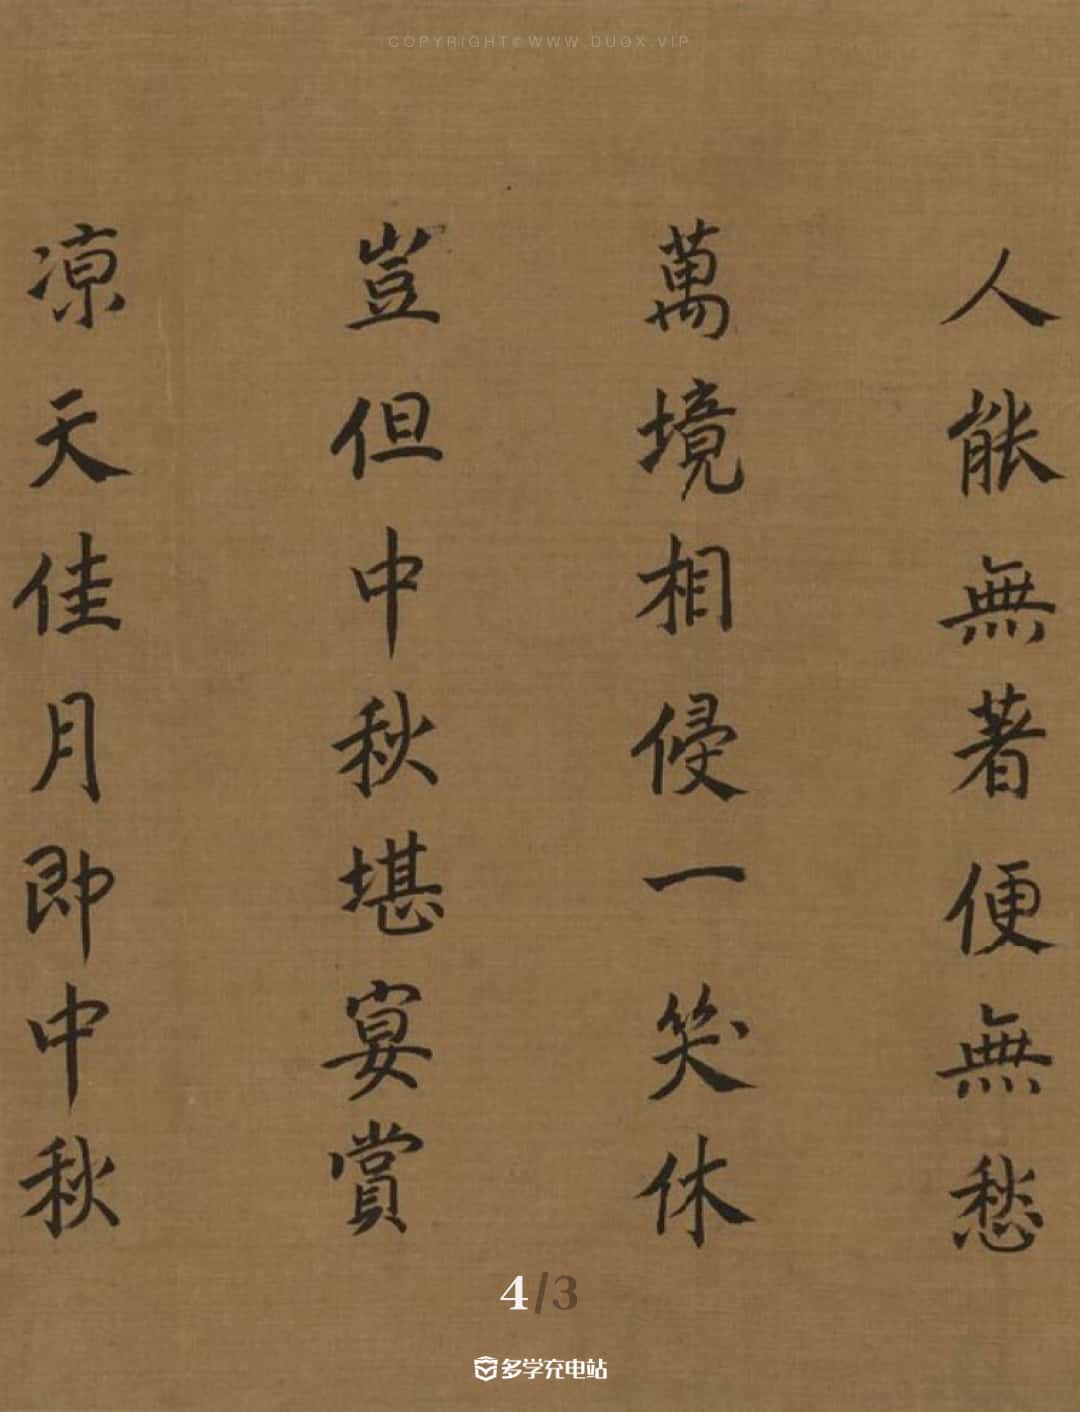 COPYRIGHT©WWW.DUGX.VIP
人能無著便無愁
萬境相侵一笑休
豈但中秋堪宴賞
凉天佳月即中秋
4/3
多学充电站